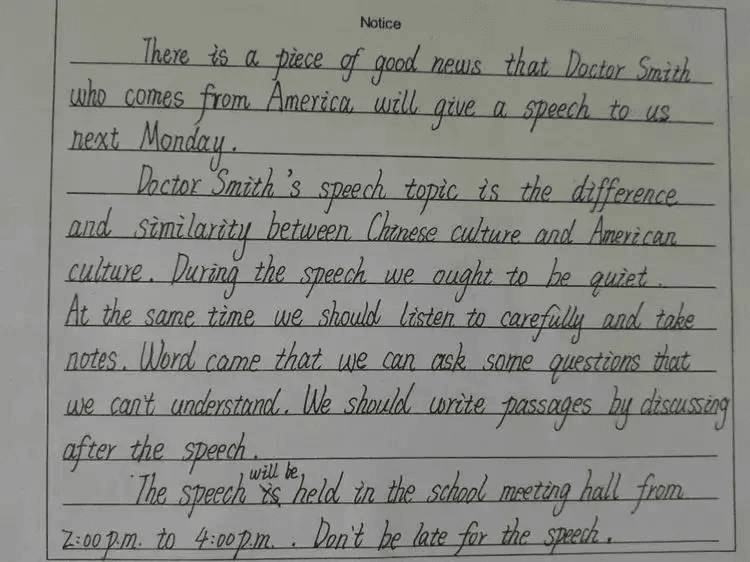 Notice
There is a piece of good news that Doctor Smith
who comes from America will give a speech to us
next Monday.
Doctor Smith's speech topic is the difference
and similarity between Chinese culture and American
culture. During the speech we ought to be quiet.
At the same time we should listen to carefully and take
notes. Word came that we can ask some questions that
we can't understand. We should write passages by discussing
after the speech.
The speech will be held in the school meeting hall from
2:00p.m. to 4:00p.m.. Don't be late for the speech.